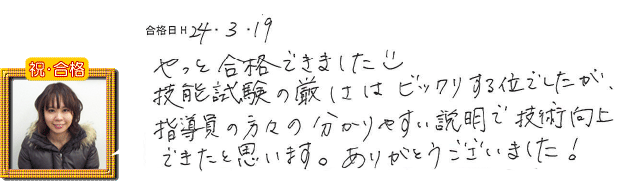 合格日 H 24・3・19
祝・合格
やっと合格できました
技能試験の厳しさはビックリする位でしたが、
指導員の方々の分かりやすい説明で技術向上
できたと思います。ありがとうございました!